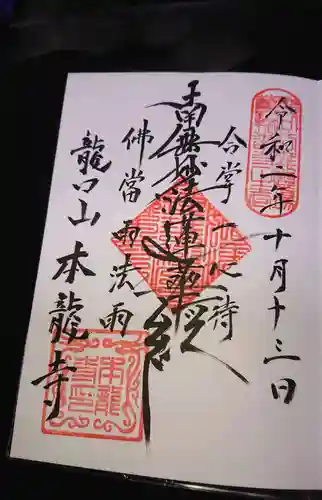 令和二年十月十三日
合掌一心待
南無妙法蓮華経
佛當雨法雨
龍口山本龍寺